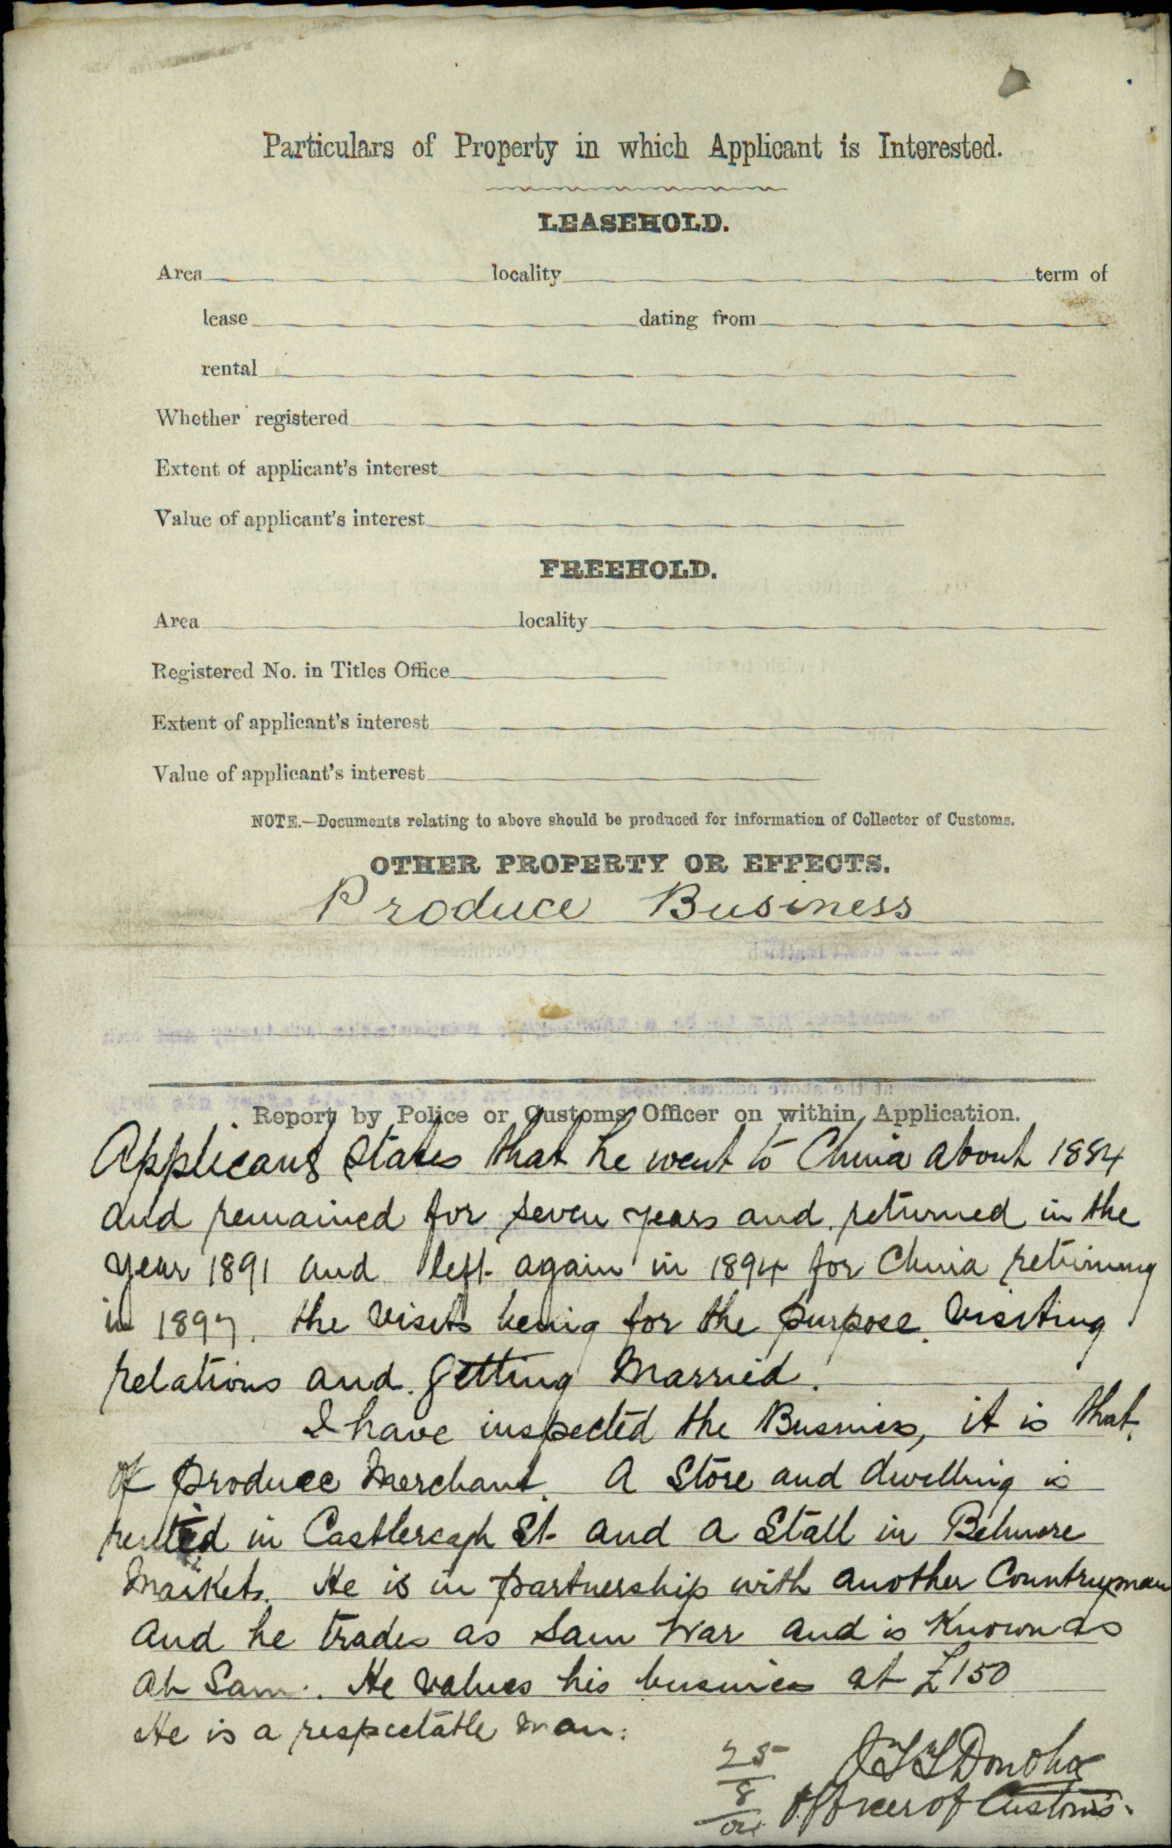 Particulars of Property in which Applicant is Interested.
LEASEHOLD.
Area locality term of
lease dating from
rental
Whether registered
Extent of applicant's interest
Value of applicant's interest
FREEHOLD.
Area locality
Registered No. in Titles Office
Extent of applicant's interest
Value of applicant's interest
NOTE.—Documents relating to above should be produced for information of Collector of Customs.
OTHER PROPERTY OR EFFECTS.
Produce Business
Report by Police or Customs Officer on within Application.
Applicant states that he went to China about 1884
and remained for seven years and returned in the
year 1891 and left again in 1894 for China returning
in 1897. the visits being for the purpose visiting
relations and getting Married.
I have inspected the Business, it is that
of produce Merchant. A Store and dwelling is
rented in Castlereagh St. and a Stall in Belmore
Markets. He is in partnership with another Countryman
and he trades as Sam War and is Known as
Ah Sam. He values his business at £150
He is a respectable man.
25 Donohoe
8 Officer of Customs.